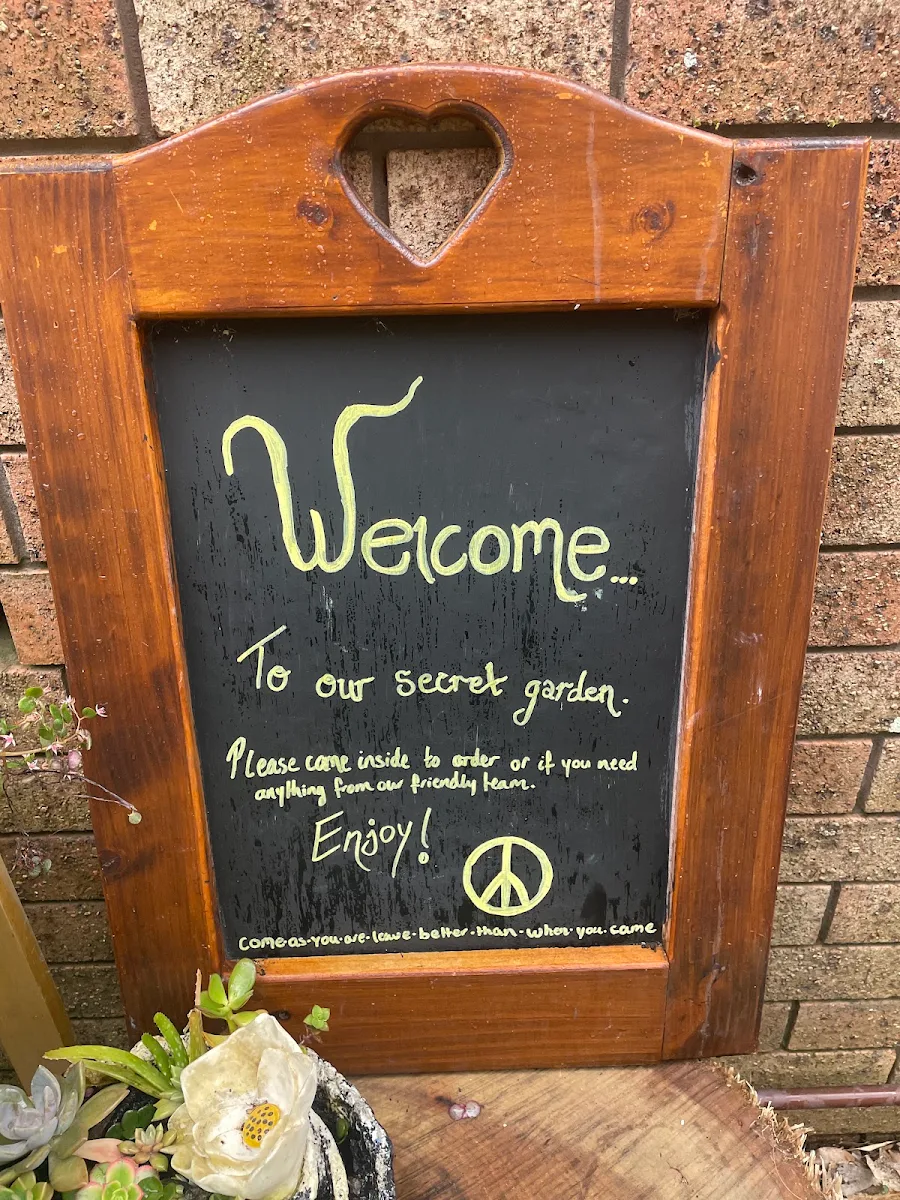 Welcome...
To our secret garden.
Please come inside to order or if you need
anything from our friendly team.
Enjoy!
come·as·you·are·leave·better·than·when·you·came